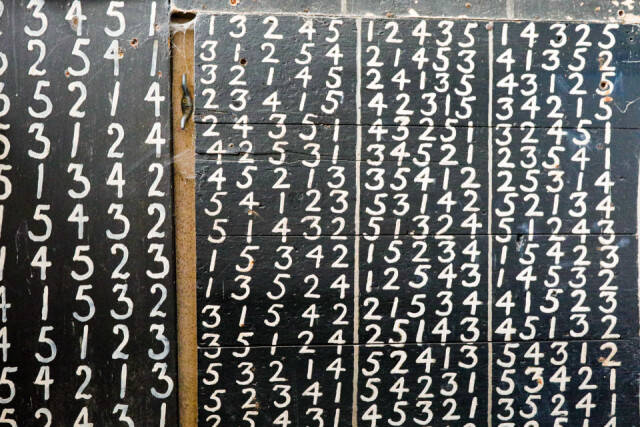 3 4 5 1
2 5 4 1
5 2 1 4
5 3 1 2 4
5 1 3 4 2
1 5 4 3 2
1 4 5 2 3
4 1 5 3 2
4 5 1 2 3
5 4 2 1 3
5 2 4 3 1
1 3 2 4 5
3 1 2 5 4
3 2 1 4 5
2 3 4 1 5
2 4 3 5 1
4 2 5 3 1
4 5 2 1 3
5 4 1 2 3
5 1 4 3 2
1 5 3 4 2
1 3 5 2 4
3 1 5 4 2
3 5 1 2 4
5 3 2 1 4
5 2 3 4 1
2 5 4 3 1
1 2 4 3 5
2 1 4 5 3
2 4 1 3 5
4 2 3 1 5
4 3 2 5 1
3 4 5 2 1
3 5 4 1 2
5 3 1 4 2
5 1 3 2 4
1 5 2 3 4
1 2 5 4 3
2 1 5 3 4
2 5 1 4 3
5 2 4 1 3
5 4 2 3 1
4 5 3 2 1
1 4 3 2 5
4 1 3 5 2
4 3 1 2 5
3 4 2 1 5
3 2 4 5 1
2 3 5 4 1
2 5 3 1 4
5 2 1 3 4
5 1 2 4 3
1 5 4 2 3
1 4 5 3 2
4 1 5 2 3
4 5 1 3 2
5 4 3 1 2
5 3 4 2 1
3 5 2 4 1